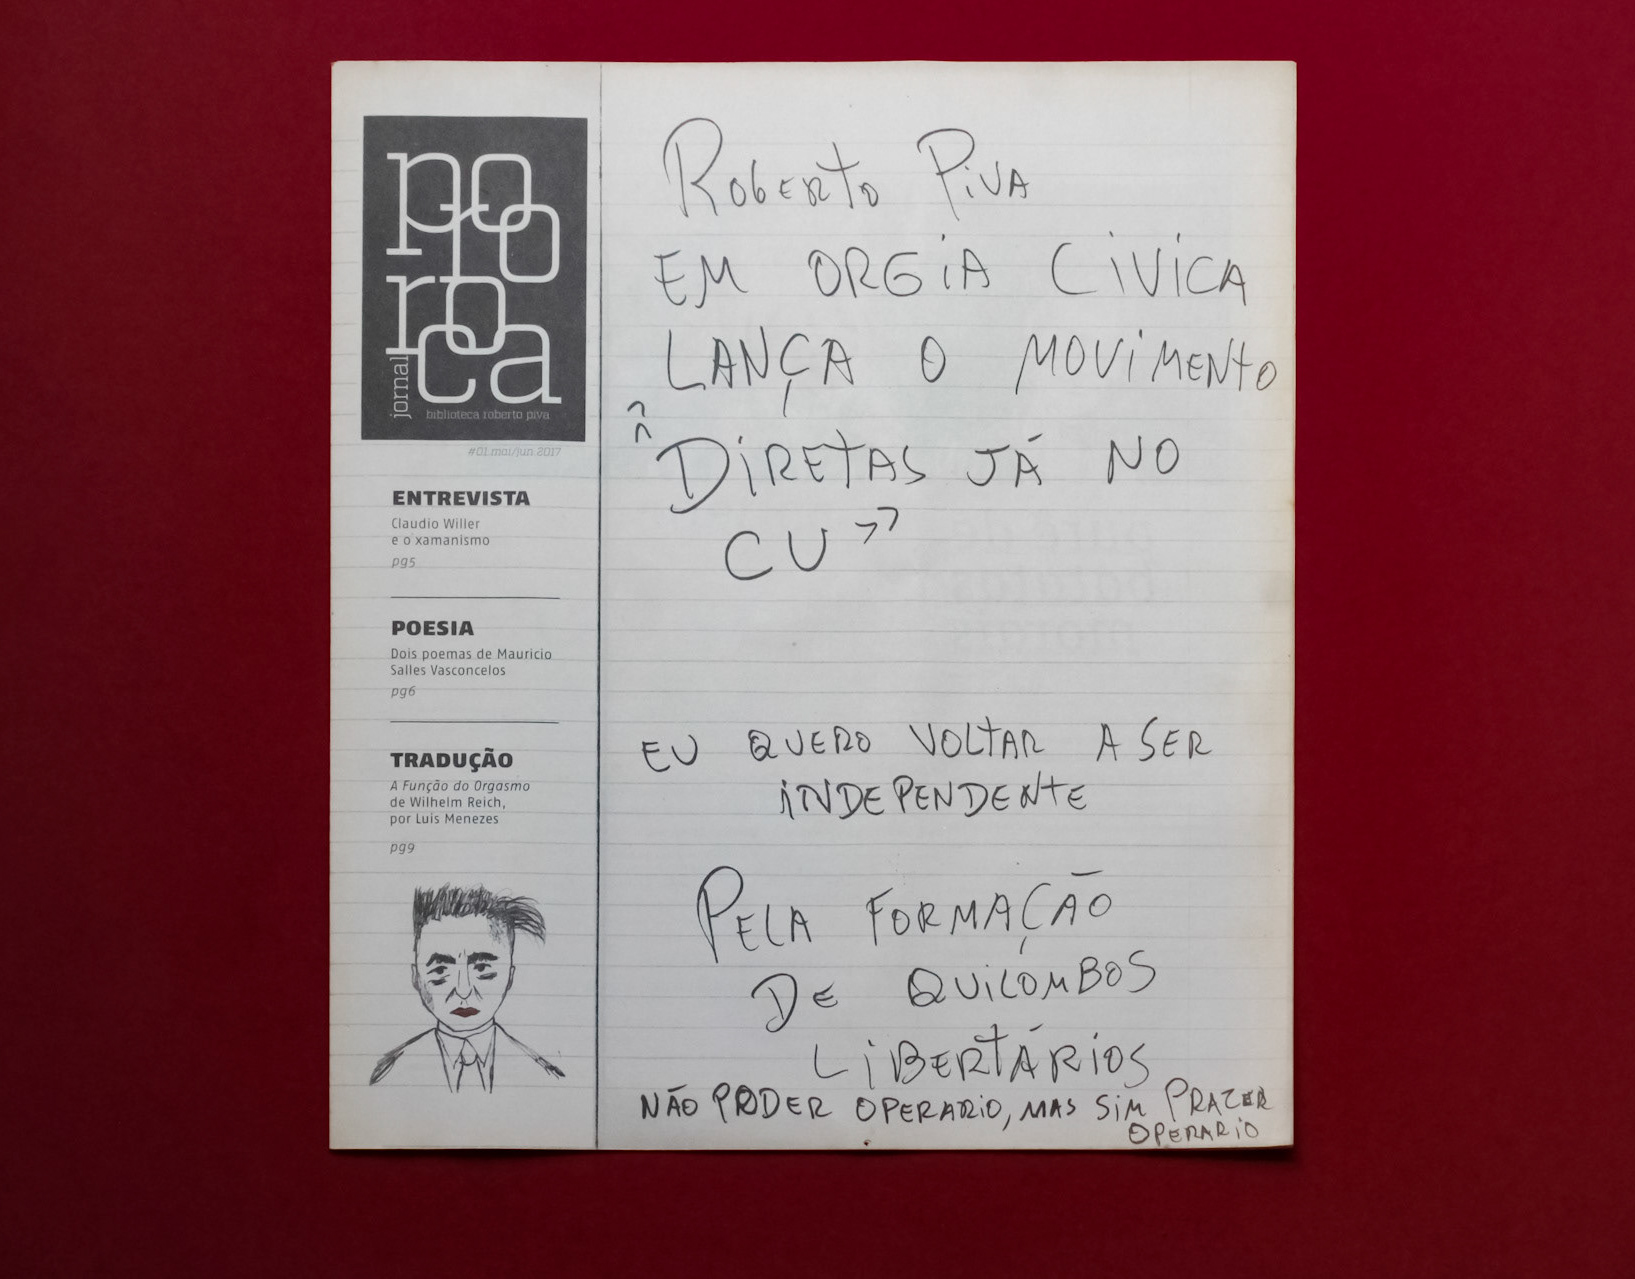 pororoca
jornal
biblioteca roberto piva
#01.mai/jun 2017
ENTREVISTA
Claudio Willer
e o xamanismo
pg5
POESIA
Dois poemas de Mauricio
Salles Vasconcelos
pg6
TRADUÇÃO
A Função do Orgasmo
de Wilhelm Reich,
por Luis Menezes
pg9
ROBERTO PIVA
EM ORGIA CIVICA
LANÇA O MOVIMENTO
"DIRETAS JÁ NO
CU"
EU QUERO VOLTAR A SER
INDEPENDENTE
PELA FORMAÇÃO
DE QUILOMBOS
LIBERTÁRIOS
NÃO PODER OPERARIO, MAS SIM PRAZER
OPERARIO